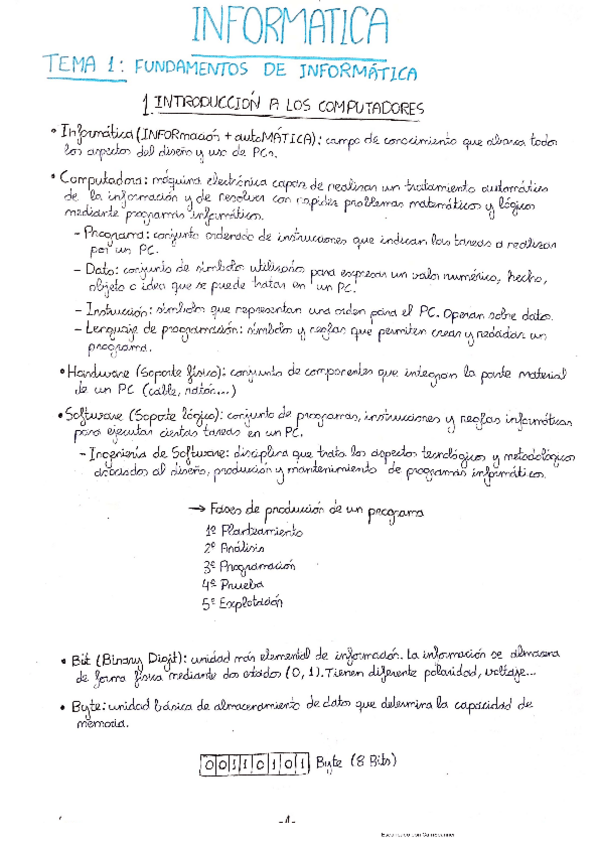 INFORMATICA
TEMA 1: FUNDAMENTOS DE INFORMÁTICA
1. INTRODUCCIÓN A LOS COMPUTADORES
• Informática (INFORmación + autoMÁTICA): campo de conocimiento que abarca todos
los aspectos del diseño y uso de PCs.
• Computadora: máquina electrónica capaz de realizar un tratamiento automático
de la información y de resolver con rapidez problemas matemáticos y lógicos
mediante programas informáticos.
- Programa: conjunto ordenado de instrucciones que indican las tareas a realizar
por un PC.
- Dato: conjunto de símbolos utilizados para expresar un valor numérico, hecho,
objeto o idea que se puede tratar en un PC.
- Instrucción: símbolos que representan una orden para el PC. Operan sobre datos.
- Lenguaje de programación: símbolos y reglas que permiten crear y redactar un
programa.
• Hardware (Soporte físico): conjunto de componentes que integran la parte material
de un PC (cable, ratón...)
• Software (Soporte lógico): conjunto de programas, instrucciones y reglas informáticas
para ejecutar ciertas tareas en un PC.
- Ingeniería de Software: disciplina que trata los aspectos tecnológicos y metodológicos
asociados al diseño, producción y mantenimiento de programas informáticos.
→ Fases de producción de un programa
1º Planteamiento
2º Análisis
3º Programación
4º Prueba
5º Explotación
• Bit (Binary Digit): unidad más elemental de información. La información se almacena
de forma física mediante dos estados (0, 1). Tienen diferente polaridad, voltaje...
• Byte: unidad básica de almacenamiento de datos que determina la capacidad de
memoria.
0 0 1 1 0 1 0 1 Byte (8 Bits)
-1-
Escaneado con CamScanner